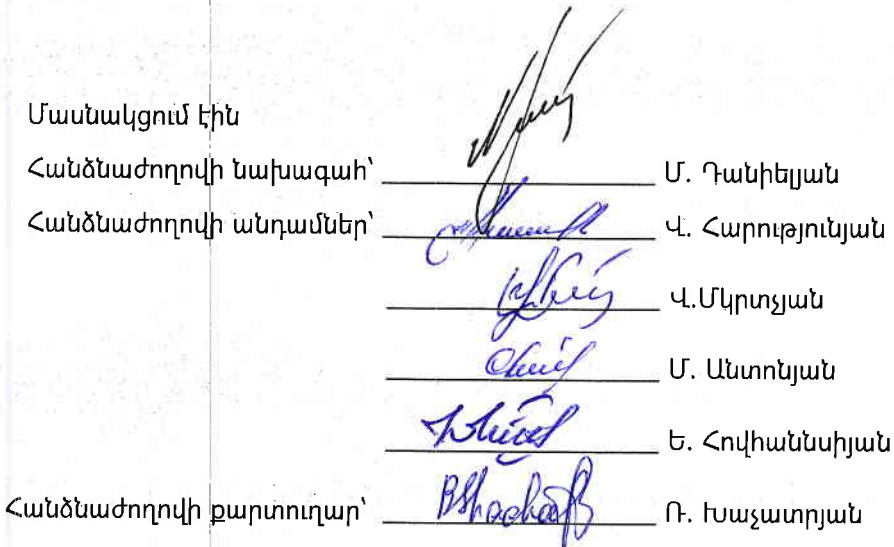 Մասնակցում էին
Հանձնաժողովի նախագահ՝ Մ. Դանիելյան
Հանձնաժողովի անդամներ՝ Վ. Հարությունյան
Վ.Մկրտչյան
Մ. Անտոնյան
Ե. Հովհաննսիյան
Հանձնաժողովի քարտուղար՝ Ռ. Խաչատրյան